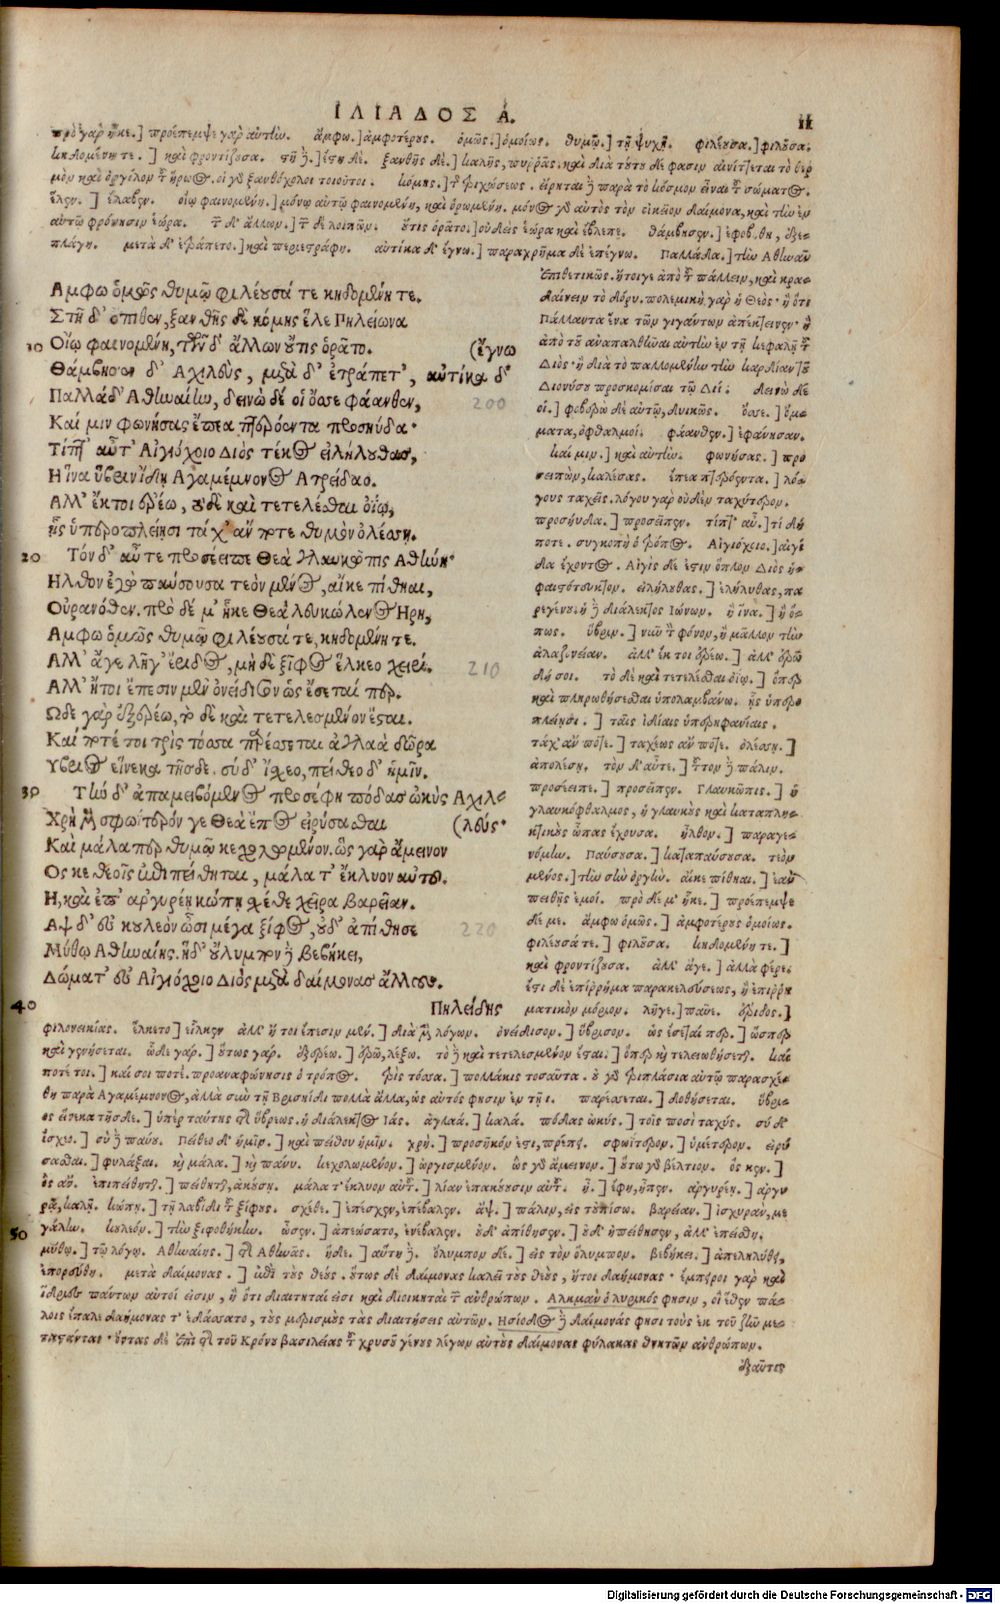 ΙΛΙΑΔΟΣ Α.
11
πρὸ γὰρ ἧκε.] προέπεμψε γὰρ αὐτὴν. ἄμφω.] ἀμφοτέρους. ὁμῶς.] ὁμοίως. θυμῷ.] τῇ ψυχῇ. φιλέουσα.] φιλοῦσα.
κηδομένη τε.] καὶ φροντίζουσα. στῆ δὲ.] ἔστη δὲ. ξανθῆς δὲ.] καλῆς, πυρρᾶς. καὶ διὰ τούτου δέ φασιν αἰνίττεται τὸ θερ
μὸν καὶ ὀργίλον τοῦ ἥρωος. οἱ γὰρ ξανθόχολοι τοιοῦτοι. κόμης.] τῆς τριχώσεως. εἴρηται δὲ παρὰ τὸ κόσμον εἶναι τοῦ σώματος.
ἕλεν.] ἔλαβεν. οἴῳ φαινομένη.] μόνῳ αὐτῷ φαινομένη, καὶ ὁρωμένη. μόνος γὰρ αὐτὸς τὸν οἰκεῖον δαίμονα, καὶ τὴν ἐν
αὐτῷ φρόνησιν ἑώρα. τῶν δ' ἄλλων.] τῶν δὲ λοιπῶν. οὔτις ὁρᾶτο.] οὐδεὶς ἑώρα καὶ ἔβλεπε. θάμβησεν.] ἐφοβήθη, ἐξε-
πλάγη. μετὰ δ' ἐτράπετο.] καὶ μετεστράφη. αὐτίκα δ' ἔγνω.] παραχρῆμα δὲ ἐπέγνω. Παλλάδα.] τὴν Ἀθηνᾶν
Αμφω ὁμῶς θυμῷ φιλέουσά τε κηδομένη τε.
Στῆ δ' ὄπιθεν, ξανθῆς δὲ κόμης ἕλε Πηλείωνα
10 Οἴῳ φαινομένη, τῶν δ' ἄλλων οὔτις ὁρᾶτο. (ἔγνω
Θάμβησεν δ' Αχιλεὺς, μετὰ δ' ἐτράπετ', αὐτίκα δ'
Παλλάδ' Αθηναίην, δεινὼ δέ οἱ ὄσσε φάανθεν, 200
Καί μιν φωνήσας ἔπεα πτερόεντα προσηύδα·
Τίπτ' αὖτ' Αἰγιόχοιο Διὸς τέκος εἰλήλουθας,
Η ἵνα ὕβριν ἴδῃ Αγαμέμνονος Ατρείδαο.
Αλλ' ἔκ τοι ἐρέω, τὸ δὲ καὶ τετελέσθαι ὀΐω,
ᾗς ὑπεροπλίῃσι τάχ' ἄν ποτε θυμὸν ὀλέσσῃ.
20 Τόν δ' αὖτε προσέειπε Θεὰ γλαυκῶπις Αθήνη·
Ηλθον ἐγὼ παύσουσα τεὸν μένος, αἴκε πίθηαι,
Οὐρανόθεν. πρὸ δέ μ' ἧκε Θεὰ λευκώλενος Ηρη,
Αμφω ὁμῶς θυμῷ φιλέουσά τε, κηδομένη τε.
Αλλ' ἄγε λῆγ' ἔριδος, μηδὲ ξίφος ἕλκεο χειρί. 210
Αλλ' ἤτοι ἔπεσιν μὲν ὀνείδισον ὡς ἔσεταί περ.
Ωδε γὰρ ἐξερέω, τὸ δὲ καὶ τετελεσμένον ἔσται.
Καί ποτέ τοι τρὶς τόσσα παρέσσεται ἀγλαὰ δῶρα
Υβριος εἵνεκα τῆσδε. σὺ δ' ἴσχεο, πείθεο δ' ἡμῖν.
30 Τὴν δ' ἀπαμειβόμενος προσέφη πόδας ὠκὺς Αχιλ-
Χρὴ μὲν σφωΐτερόν γε Θεὰ ἔπος εἰρύσασθαι (λεύς·
Καὶ μάλα περ θυμῷ κεχολωμένον. ὣς γὰρ ἄμεινον
Ος κε θεοῖς ἐπιπείθηται, μάλα τ' ἔκλυον αὐτοῦ.
Η, καὶ ἐπ' ἀργυρέῃ κώπῃ σχέθε χεῖρα βαρεῖαν.
Αψ δ' ἐς κουλεὸν ὦσε μέγα ξίφος, οὐδ' ἀπίθησε 220
Μύθῳ Αθηναίης. ἡ δ' οὔλυμπον δὲ βεβήκει,
Δώματ' ἐς Αἰγιόχοιο Διὸς μετὰ δαίμονας ἄλλους.
40 Πηλείδης
Ἐπιθετικῶς. ἤτοι γε ἀπὸ τοῦ πάλλειν, καὶ κρα-
δαίνειν τὸ δόρυ. πολεμικὴ γὰρ ἡ Θεός· ἢ ὅτι
Πάλλαντα ἕνα τῶν γιγάντων ἀπέκτεινεν· ἢ
ἀπὸ τοῦ ἀναπαλθῆναι αὐτὴν ἐν τῇ κεφαλῇ τοῦ
Διός· ἢ διὰ τὸ παλλομένην τὴν καρδίαν τοῦ
Διονύσου προσκομίσαι τῷ Διί. δεινὼ δέ
οἱ.] φοβερὼ δὲ αὐτῷ, δυικῶς. ὄσσε.] ὄμ-
ματα, ὀφθαλμοί. φάανθεν.] ἐφάνησαν.
καί μιν.] καὶ αὐτὴν. φωνήσας.] προ
σειπὼν, καλέσας. ἔπεα πτερόεντα.] λό-
γους ταχεῖς. λόγου γὰρ οὐδὲν ταχύτερον.
προσηύδα.] προσεῖπεν. τίπτ' αὖ.] τί δή
ποτε. συγκοπὴ ὁ τρόπος. Αἰγιόχοιο.] αἰγί
δα ἔχοντος. Αἰγὶς δέ ἐστιν ὅπλον Διὸς ἡ-
φαιστότευκτον. εἰλήλουθας.] ἐλήλυθας, πα
ρεγένου. ἡ δὲ διάλεκτος Ἰώνων. ἢ ἵνα.] ἢ ὅ-
πως. ὕβριν.] νῦν τὸν φόνον, ἢ μᾶλλον τὴν
ἀλαζονείαν. ἀλλ' ἔκ τοι ἐρέω.] ἀλλ' ἐρῶ
δή σοι. τὸ δὲ καὶ τετελέσθαι ὀίω.] ὅπερ
καὶ πληρωθήσεσθαι ὑπολαμβάνω. ᾗς ὑπερο
πλίῃσι.] ταῖς ἰδίαις ὑπερηφανίαις.
τάχ' ἄν ποτε.] ταχέως ἄν ποτε. ὀλέσσῃ.]
ἀπολέσῃ. τὸν δ' αὖτε.] τοῦτον δὲ πάλιν.
προσέειπε.] προσεῖπεν. Γλαυκῶπις.] ἡ
γλαυκόφθαλμος, ἢ γλαυκοὺς καὶ καταπλη-
κτικοὺς ὦπας ἔχουσα. ἦλθον.] παραγε-
νόμην. Παύσουσα.] καταπαύσουσα. τεὸν
μένος.] τὴν σὴν ὀργὴν. αἴκε πίθηαι.] ἐὰν
πεισθῇς ἐμοί. πρὸ δέ μ' ἧκε.] προέπεμψε
δέ με. ἄμφω ὁμῶς.] ἀμφοτέρους ὁμοίως.
φιλέουσά τε.] φιλοῦσα. κηδομένη τε.]
καὶ φροντίζουσα. ἀλλ' ἄγε.] ἀλλὰ φέρε,
ἔστι δὲ ἐπίρρημα παρακελεύσεως, ἢ ἐπιρρη
ματικὸν μόριον. λῆγε.] παῦε. ἔριδος.]
φιλονεικίας. ἕλκετο] εἷλκεν ἀλλ' ἤ τοι ἔπεσιν μὲν.] διὰ μὲν λόγων. ὀνείδισον.] ὕβρισον. ὡς ἔσεται περ.] ὥσπερ
καὶ γενήσεται. ὧδε γὰρ.] οὕτως γὰρ. ἐξερέω.] ἐρῶ, λέξω. τὸ δὲ καὶ τετελεσμένον ἔσται.] ὅπερ καὶ τελειωθήσεται. καί
ποτέ τοι.] καί σοι ποτέ. προαναφώνησις ὁ τρόπος. τρὶς τόσσα.] πολλάκις τοσαῦτα. οὐ γὰρ τριπλάσια αὐτῷ παρασχέ-
θη παρὰ Αγαμέμνονος, ἀλλὰ σὺν τῇ Βρισηΐδι πολλὰ ἄλλα, ὡς αὐτός φησιν ἐν τῇ ι. παρέσσεται.] δοθήσεται. ὕβρι-
ος εἵνεκα τῆσδε.] ὑπὲρ ταύτης τῆς ὕβρεως. ἡ διάλεκτος Ἰάς. ἀγλαά.] καλά. πόδας ὠκύς.] τοῖς ποσὶ ταχύς. σὺ δ'
ἴσχεο.] σὺ δὲ παύου. Πείθεο δ' ἡμῖν.] καὶ πείθου ἡμῖν. χρή.] προσῆκόν ἐστι, πρέπει. σφωΐτερον.] ὑμέτερον. εἰρύ
σασθαι.] φυλάξαι. καὶ μάλα.] καὶ πάνυ. κεχολωμένον.] ὠργισμένον. ὣς γὰρ ἄμεινον.] οὕτω γὰρ βέλτιον. ὅς κεν.]
ὃς ἄν. ἐπιπείθηται.] πείθηται, ἀκούσῃ. μάλα τ' ἔκλυον αὐτοῦ.] λίαν ἐπακούουσιν αὐτοῦ. ἦ.] ἔφη, εἶπεν. ἀργυρέῃ.] ἀργυ
ρᾷ, καλῇ. κώπῃ.] τῇ λαβίδι τοῦ ξίφους. σχέθε.] ἐπέσχεν, ἐπέβαλεν. ἄψ.] πάλιν, εἰς τοὐπίσω. βαρεῖαν.] ἰσχυρὰν, με
50 γάλην. κουλεόν.] τὴν ξιφοθήκην. ὦσεν.] ἀπεώσατο, ἐνέβαλεν. οὐδ' ἀπίθησεν.] οὐδ' ἠπείθησεν, ἀλλ' ἐπείσθη.
μύθῳ.] τῷ λόγῳ. Αθηναίης.] τῆς Αθηνᾶς. ἡ δὲ.] αὕτη δὲ. οὔλυμπον δὲ.] εἰς τὸν ὄλυμπον. βεβήκει.] ἀπεληλύθει,
ἐπορεύθη. μετὰ δαίμονας.] ἐπὶ τοὺς θεούς. οὕτως δὲ δαίμονας καλεῖ τοὺς θεούς, ἤτοι δαήμονας· ἔμπειροι γὰρ καὶ
ἴδριες πάντων αὐτοί εἰσιν, ἢ ὅτι διαιτηταί εἰσι καὶ διοικηταὶ τῶν ἀνθρώπων. Αλκμὰν ὁ λυρικός φησιν, οἷ ἔθεν πά-
λοις ἔπαλε δαήμονας τ' ἐδάσσατο, τοὺς μερισμοὺς τὰς διαιτήσεις αὐτῶν. Ησίοδος δὲ δαίμονάς φησι τοὺς ἐκ τοῦ ζῆν με-
ταστάντας· ὄντας δὲ ἐπὶ τῆς τοῦ Κρόνου βασιλείας τοῦ χρυσοῦ γένους λέγων αὐτοὺς δαίμονας φύλακας θνητῶν ἀνθρώπων.
ἐξαῦτις
Digitalisierung gefördert durch die Deutsche Forschungsgemeinschaft - DFG